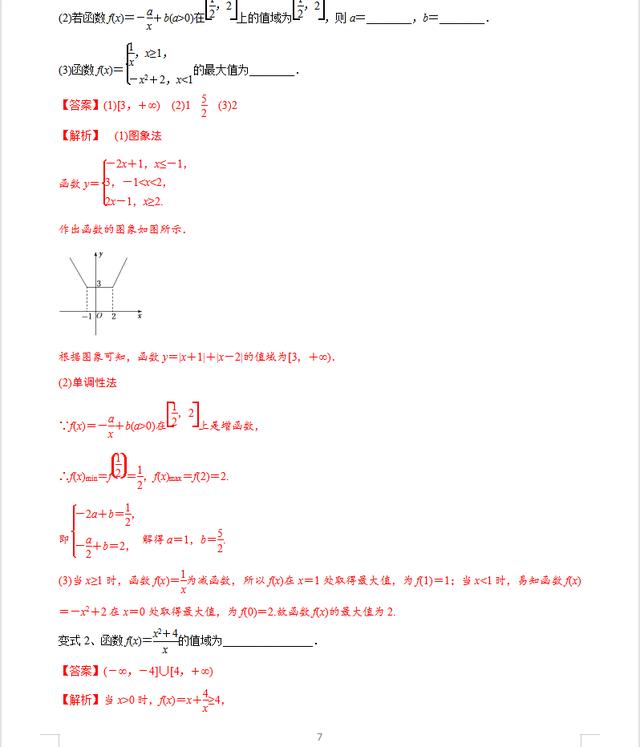 (2)若函数 f(x)=-a/x+b(a>0)在[1/2, 2]上的值域为[1/2, 2], 则 a=________, b=________.
(3)函数 f(x)={1/x, x≥1, -x²+2, x<1的最大值为________.
【答案】(1)[3, +∞) (2)1 5/2 (3)2
【解析】 (1)图象法
函数 y={-2x+1, x≤-1, 3, -1<x<2, 2x-1, x≥2.
作出函数的图象如图所示.
y
3
-1 O 2 x
根据图象可知, 函数 y=|x+1|+|x-2|的值域为[3, +∞).
(2)单调性法
∵f(x)=-a/x+b(a>0)在[1/2, 2]上是增函数,
∴f(x)min=f(1/2)=1/2, f(x)max=f(2)=2.
即{-2a+b=1/2, -a/2+b=2, 解得 a=1, b=5/2.
(3)当 x≥1 时, 函数 f(x)=1/x为减函数, 所以 f(x)在 x=1 处取得最大值, 为 f(1)=1; 当 x<1 时, 易知函数 f(x)
=-x²+2 在 x=0 处取得最大值, 为 f(0)=2.故函数 f(x)的最大值为 2.
变式 2、函数 f(x)=x²+4/x的值域为________________.
【答案】(-∞, -4]∪[4, +∞)
【解析】当 x>0 时, f(x)=x+4/x≥4,
7